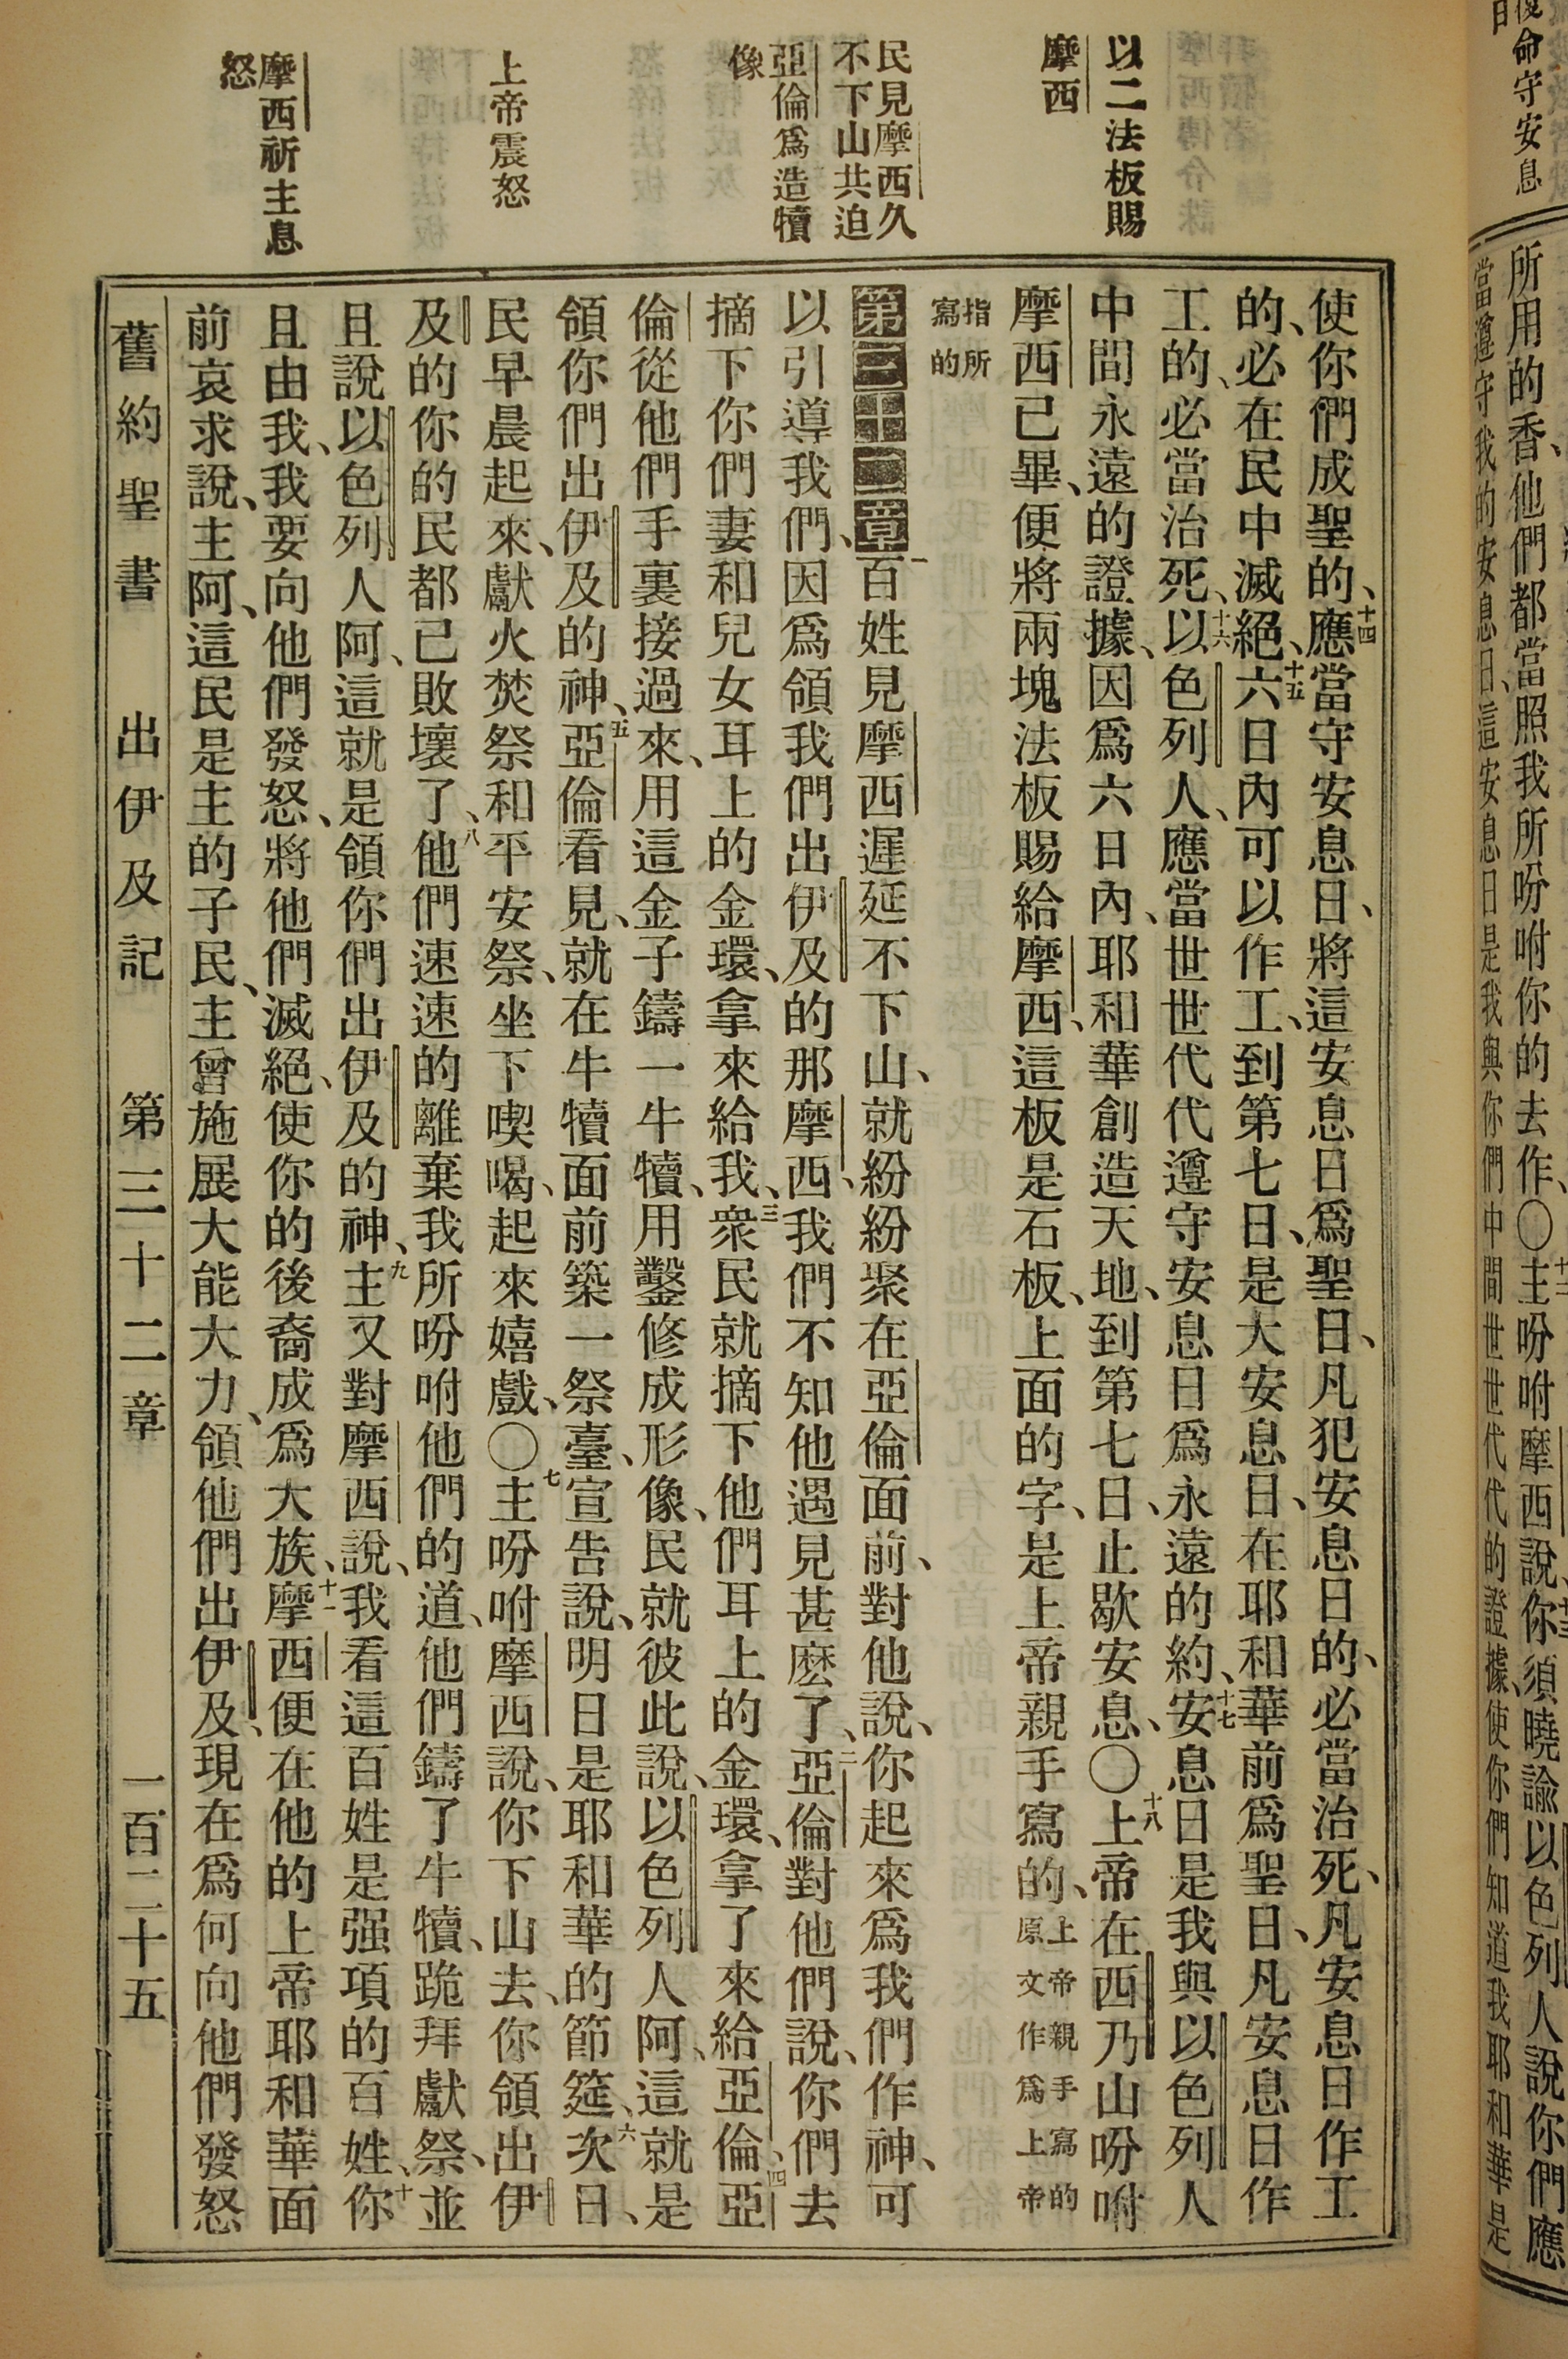 復命守安息
日
所用的香、他們都當照我所吩咐你的去作、〇十二主吩咐摩西說、十三你須曉諭以色列人說你們應
當遵守我的安息日、這安息日是我與你們中間世世代代的證據、使你們知道我耶和華是
以二法板賜
摩西
民見摩西久
不下山共迫
亞倫爲造犢
像
上帝震怒
摩西祈主息
怒
使你們成聖的、十四應當守安息日、將這安息日爲聖日、凡犯安息日的、必當治死、凡安息日作工
的、必在民中滅絕、十五六日內可以作工、到第七日、是大安息日、在耶和華前爲聖日、凡安息日作
工的、必當治死、十六以色列人、應當世世代代遵守安息日爲永遠的約、十七安息日是我與以色列人
中間永遠的證據、因爲六日內、耶和華創造天地、到第七日、止歇安息、〇十八上帝在西乃山吩咐
摩西已畢、便將兩塊法板賜給摩西、這板是石板、上面的字、是上帝親手寫的、上帝親手寫的原文作爲上帝
指所寫的
第三十二章一百姓見摩西遲延不下山、就紛紛聚在亞倫面前、對他說、你起來爲我們作神、可
以引導我們、因爲領我們出伊及的那摩西、我們不知他遇見甚麼了、二亞倫對他們說、你們去
摘下你們妻和兒女耳上的金環、拿來給我、三衆民就摘下他們耳上的金環、拿了來給亞倫、四亞
倫從他們手裏接過來、用這金子鑄一牛犢、用鑿修成形像、民就彼此說、以色列人阿、這就是
領你們出伊及的神、五亞倫看見、就在牛犢面前築一祭臺、宣告說、明日是耶和華的節筵、六次日、
民早晨起來、獻火焚祭和平安祭、坐下喫喝、起來嬉戲、〇七主吩咐摩西說、你下山去、你領出伊
及的你的民都已敗壞了、八他們速速的離棄我所吩咐他們的道、他們鑄了牛犢、跪拜獻祭、並
且說以色列人阿、這就是領你們出伊及的神、九主又對摩西說、我看這百姓是强項的百姓、十你
且由我、我要向他們發怒、將他們滅絕、使你的後裔成爲大族、十一摩西便在他的上帝耶和華面
前哀求說、主阿、這民是主的子民、主曾施展大能大力、領他們出伊及、現在爲何向他們發怒
舊約聖書 出伊及記 第三十二章 一百二十五